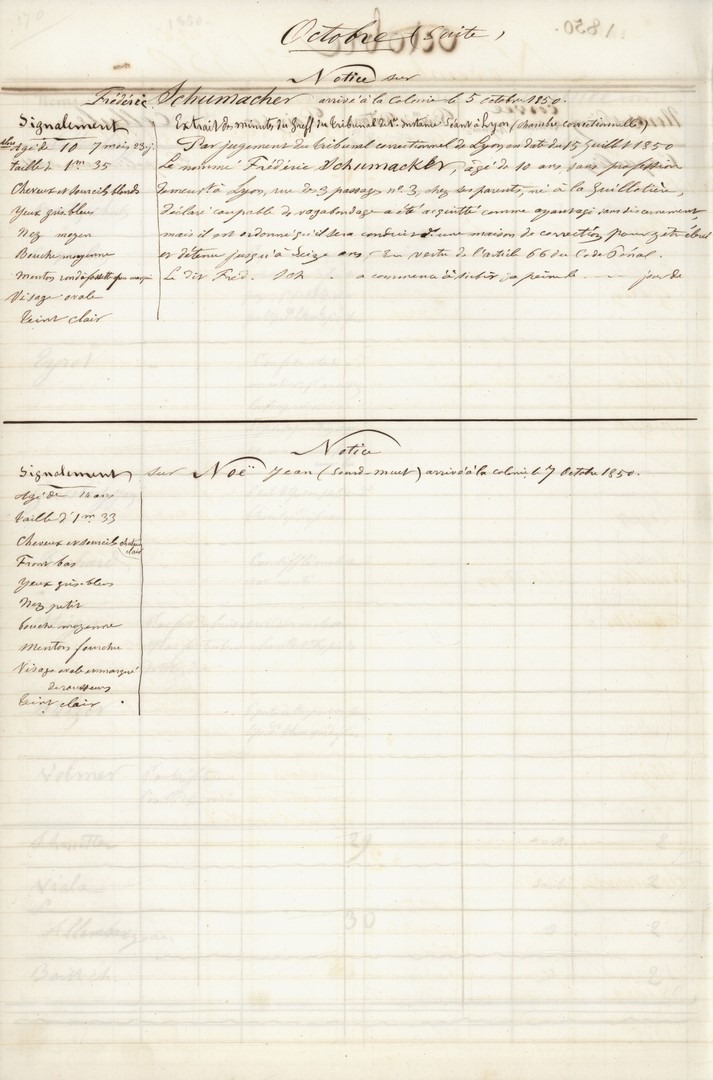 Octobre (Suite)
Notice sur
Frédéric Schumacher arrivé à la Colonie le 5 octobre 1850.
Signalement
Agé de 10 7 mois 23 j.
taille d 1m 35
Cheveux et sourcils blonds
Yeux gris bleus
Nez moyen
Bouche moyenne
Menton rond à fossette
Visage ovale
teint clair
Extrait des minutes du Greff du tribunal de 1re instance séant à Lyon (chambre correctionnelle)
Par jugement du tribunal correctionnel de Lyon en date du 15 juillet 1850
Le nommé Frédéric Schumacker, âgé de 10 ans, sans profession
demeurt à Lyon, rue des 3 passages no. 3, chez ses parents, né à la Guillotière,
déclaré coupable de vagabondage a été acquitté comme ayant agi sans discernement
mais il est ordonné qu'il sera conduit d une maison de correction pour y être élevé
et détenu jusqu'à seize ans en vertu de l'article 66 du Code Pénal.
Le dit Fred. Sch a commencé à subir sa peine le jour de
Notice
sur Noë Jean (Sourd-muet) arrivé à la colonie le 7 Octobre 1850.
Signalement
Agé de 14 ans
taille d' 1m 33
Cheveux et sourcils chatain clair
Front bas
Yeux gris bleus
Nez petit
bouche moyenne
Menton fourchu
Visage ovale et marqué
de rousseurs
teint clair